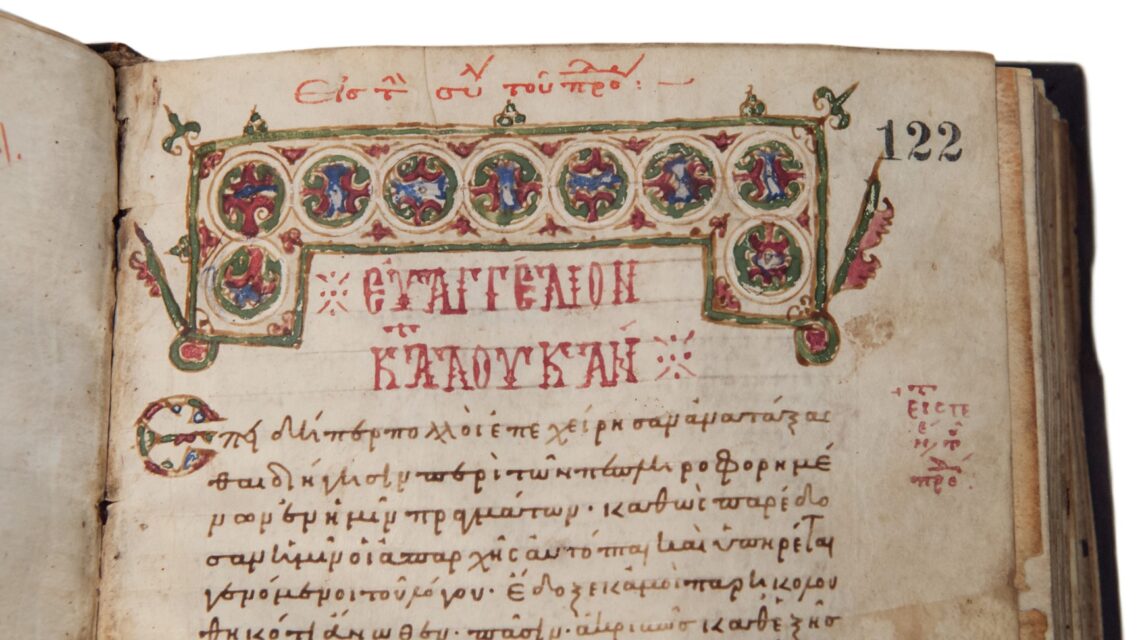 Εἰς τ̑ συ^λ τοῦ προ^δ :
122
ΕΥΑΓΓΕΛΙΟΝ
ΚΑΤΑ ΛΟΥΚΑΝ
Ἐπειδήπερ πολλοὶ ἐπεχείρησαν ἀνατάξασ
θαι διήγησιν περὶ τῶν πεπληροφορημέ
νων ἐν ἡμῖν πραγμάτων· καθὼς παρέδο
σαν ἡμῖν οἱ ἀπαρχῆς αὐτόπται καὶ ὑπηρέται
γενόμενοι τοῦ λόγου· ἔδοξε κἀμοὶ παρηκολου
θηκότι ἄνωθεν· πᾶσιν· ἀκριβῶς καθεξῆς